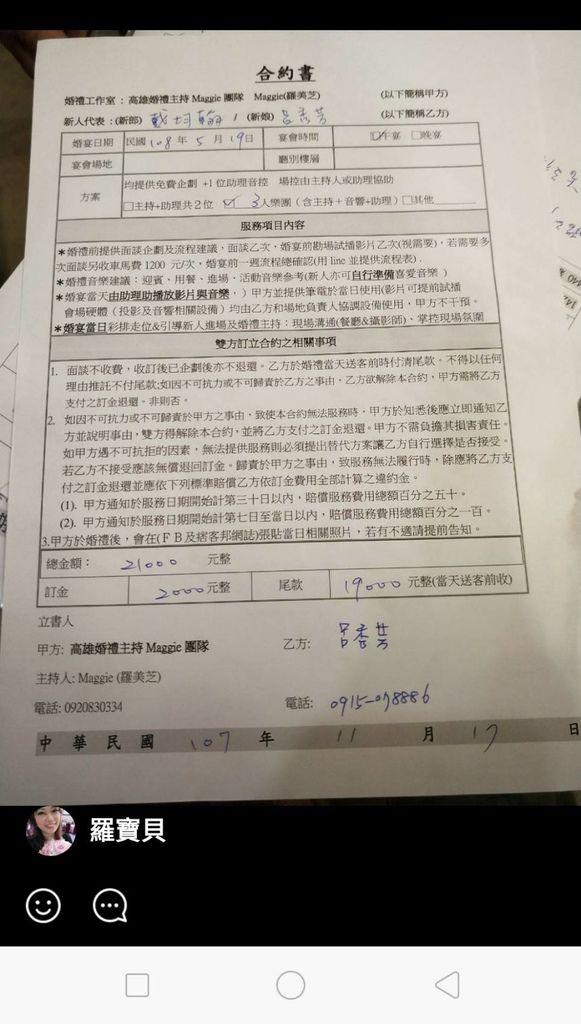 合約書
婚禮工作室：高雄婚禮主持 Maggie 團隊 Maggie(羅美芝) (以下簡稱甲方)
新人代表：(新郎) 戴均翰 / (新娘) 呂秀芳 (以下簡稱乙方)
婚宴日期 民國 108 年 5 月 19日 宴會時間 ☑午宴 □晚宴
宴會場地 廳別樓層
方案 均提供免費企劃 +1 位助理音控 場控由主持人或助理協助
□主持+助理共 2 位 ☑ 3人樂團（含主持＋音響+助理）□其他
服務項目內容
＊婚禮前提供面談企劃及流程建議，面談乙次，婚宴前勘場試播影片乙次(視需要)，若需要多
次面談另收車馬費 1200 元/次，婚宴前一週流程總確認(用 line 並提供流程表)．
＊婚禮音樂建議：迎賓、用餐、進場、活動音樂參考(新人亦可自行準備喜愛音樂 )
＊婚宴當天由助理助播放影片與音樂，）甲方並提供筆電於當日使用(影片可提前試播
會場硬體（投影及音響相關設備）均由乙方和場地負責人協調設備使用，甲方不干預。
＊婚宴當日彩排走位&引導新人進場及婚禮主持：現場溝通(餐廳&攝影師)、掌控現場氛圍
雙方訂立合約之相關事項
1. 面談不收費，收訂後已企劃後亦不退還。乙方於婚禮當天送客前時付清尾款。不得以任何
理由推託不付尾款;如因不可抗力或不可歸責於乙方之事由，乙方欲解除本合約，甲方需將乙方
支付之訂金退還。非則否。
2. 如因不可抗力或不可歸責於甲方之事由，致使本合約無法服務時，甲方於知悉後應立即通知乙
方並說明事由，雙方得解除本合約，並將乙方支付之訂金退還。甲方不需負擔其損害責任。
如甲方遇不可抗拒的因素，無法提供服務則必須提出替代方案讓乙方自行選擇是否接受。
若乙方不接受應該無償退回訂金。歸責於甲方之事由，致服務無法履行時，除應將乙方支
付之訂金退還並應依下列標準賠償乙方依訂金費用全部計算之違約金。
(1). 甲方通知於服務日期開始計第三十日以內，賠償服務費用總額百分之五十。
(2). 甲方通知於服務日期開始計第七日至當日以內，賠償服務費用總額百分之一百。
3.甲方於婚禮後，會在(ＦＢ及痞客邦網誌)張貼當日相關照片，若有不適請提前告知。
總金額： 21000 元整
訂金 2000元整 尾款 19000 元整(當天送客前收)
立書人
甲方: 高雄婚禮主持 Maggie 團隊 乙方: 呂秀芳
主持人: Maggie (羅美芝)
電話: 0920830334 電話: 0915-078886
中 華 民 國 107 年 11 月 17 日
羅寶貝